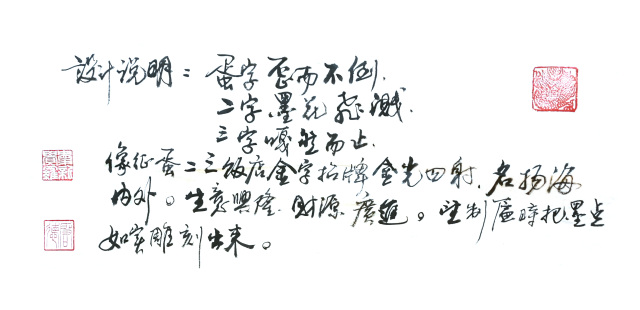 設计说明：蛋字歪而不倒.
二字墨花飛溅.
三字嘎然而止.
像征蛋二三飯店金字招牌金光四射.名扬海
内外。生意興隆.財源廣進。望制匾時把墨点
如实雕刻出来。